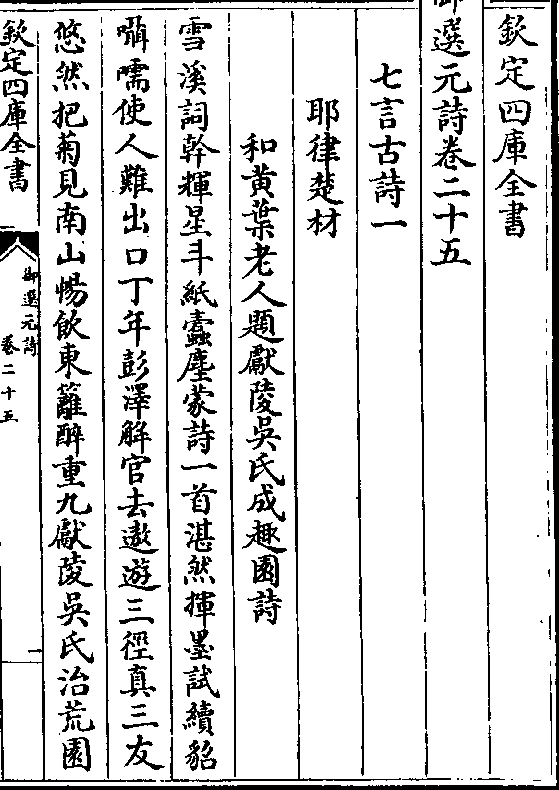 欽定四庫全書
御選元詩卷二十五
七言古詩一
耶律楚材
和黃葉老人題獻陵吳氏成趣園詩
雪溪詞翰輝星斗紙蠹塵蒙詩一首湛然揮墨試續貂
囁嚅使人難出口丁年彭澤解官去遨遊三徑真三友
悠然把菊見南山暢飲東籬醉重九獻陵吳氏治荒園
欽定四庫全書
御選元詩
卷二十五
一